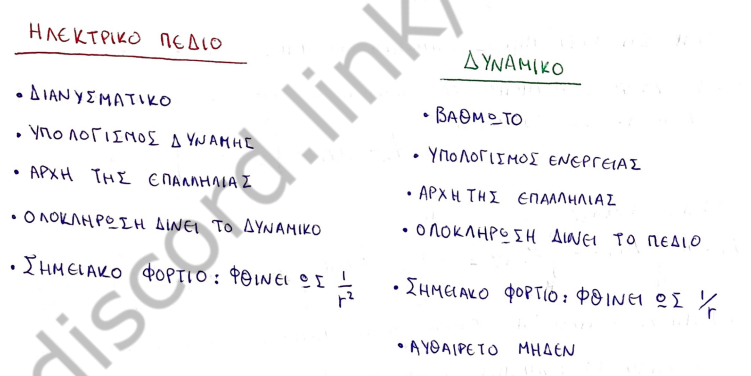 ΗΛΕΚΤΡΙΚΟ ΠΕΔΙΟ
• ΔΙΑΝΥΣΜΑΤΙΚΟ
• ΥΠΟΛΟΓΙΣΜΟΣ ΔΥΝΑΜΗΣ
• ΑΡΧΗ ΤΗΣ ΕΠΑΛΛΗΛΙΑΣ
• ΟΛΟΚΛΗΡΩΣΗ ΔΙΝΕΙ ΤΟ ΔΥΝΑΜΙΚΟ
• ΣΗΜΕΙΑΚΟ ΦΟΡΤΙΟ: ΦΘΙΝΕΙ ΩΣ 1/r²
ΔΥΝΑΜΙΚΟ
• ΒΑΘΜΩΤΟ
• ΥΠΟΛΟΓΙΣΜΟΣ ΕΝΕΡΓΕΙΑΣ
• ΑΡΧΗ ΤΗΣ ΕΠΑΛΛΗΛΙΑΣ
• ΟΛΟΚΛΗΡΩΣΗ ΔΙΝΕΙ ΤΟ ΠΕΔΙΟ
• ΣΗΜΕΙΑΚΟ ΦΟΡΤΙΟ: ΦΘΙΝΕΙ ΩΣ 1/r
• ΑΥΘΑΙΡΕΤΟ ΜΗΔΕΝ
discord.link/